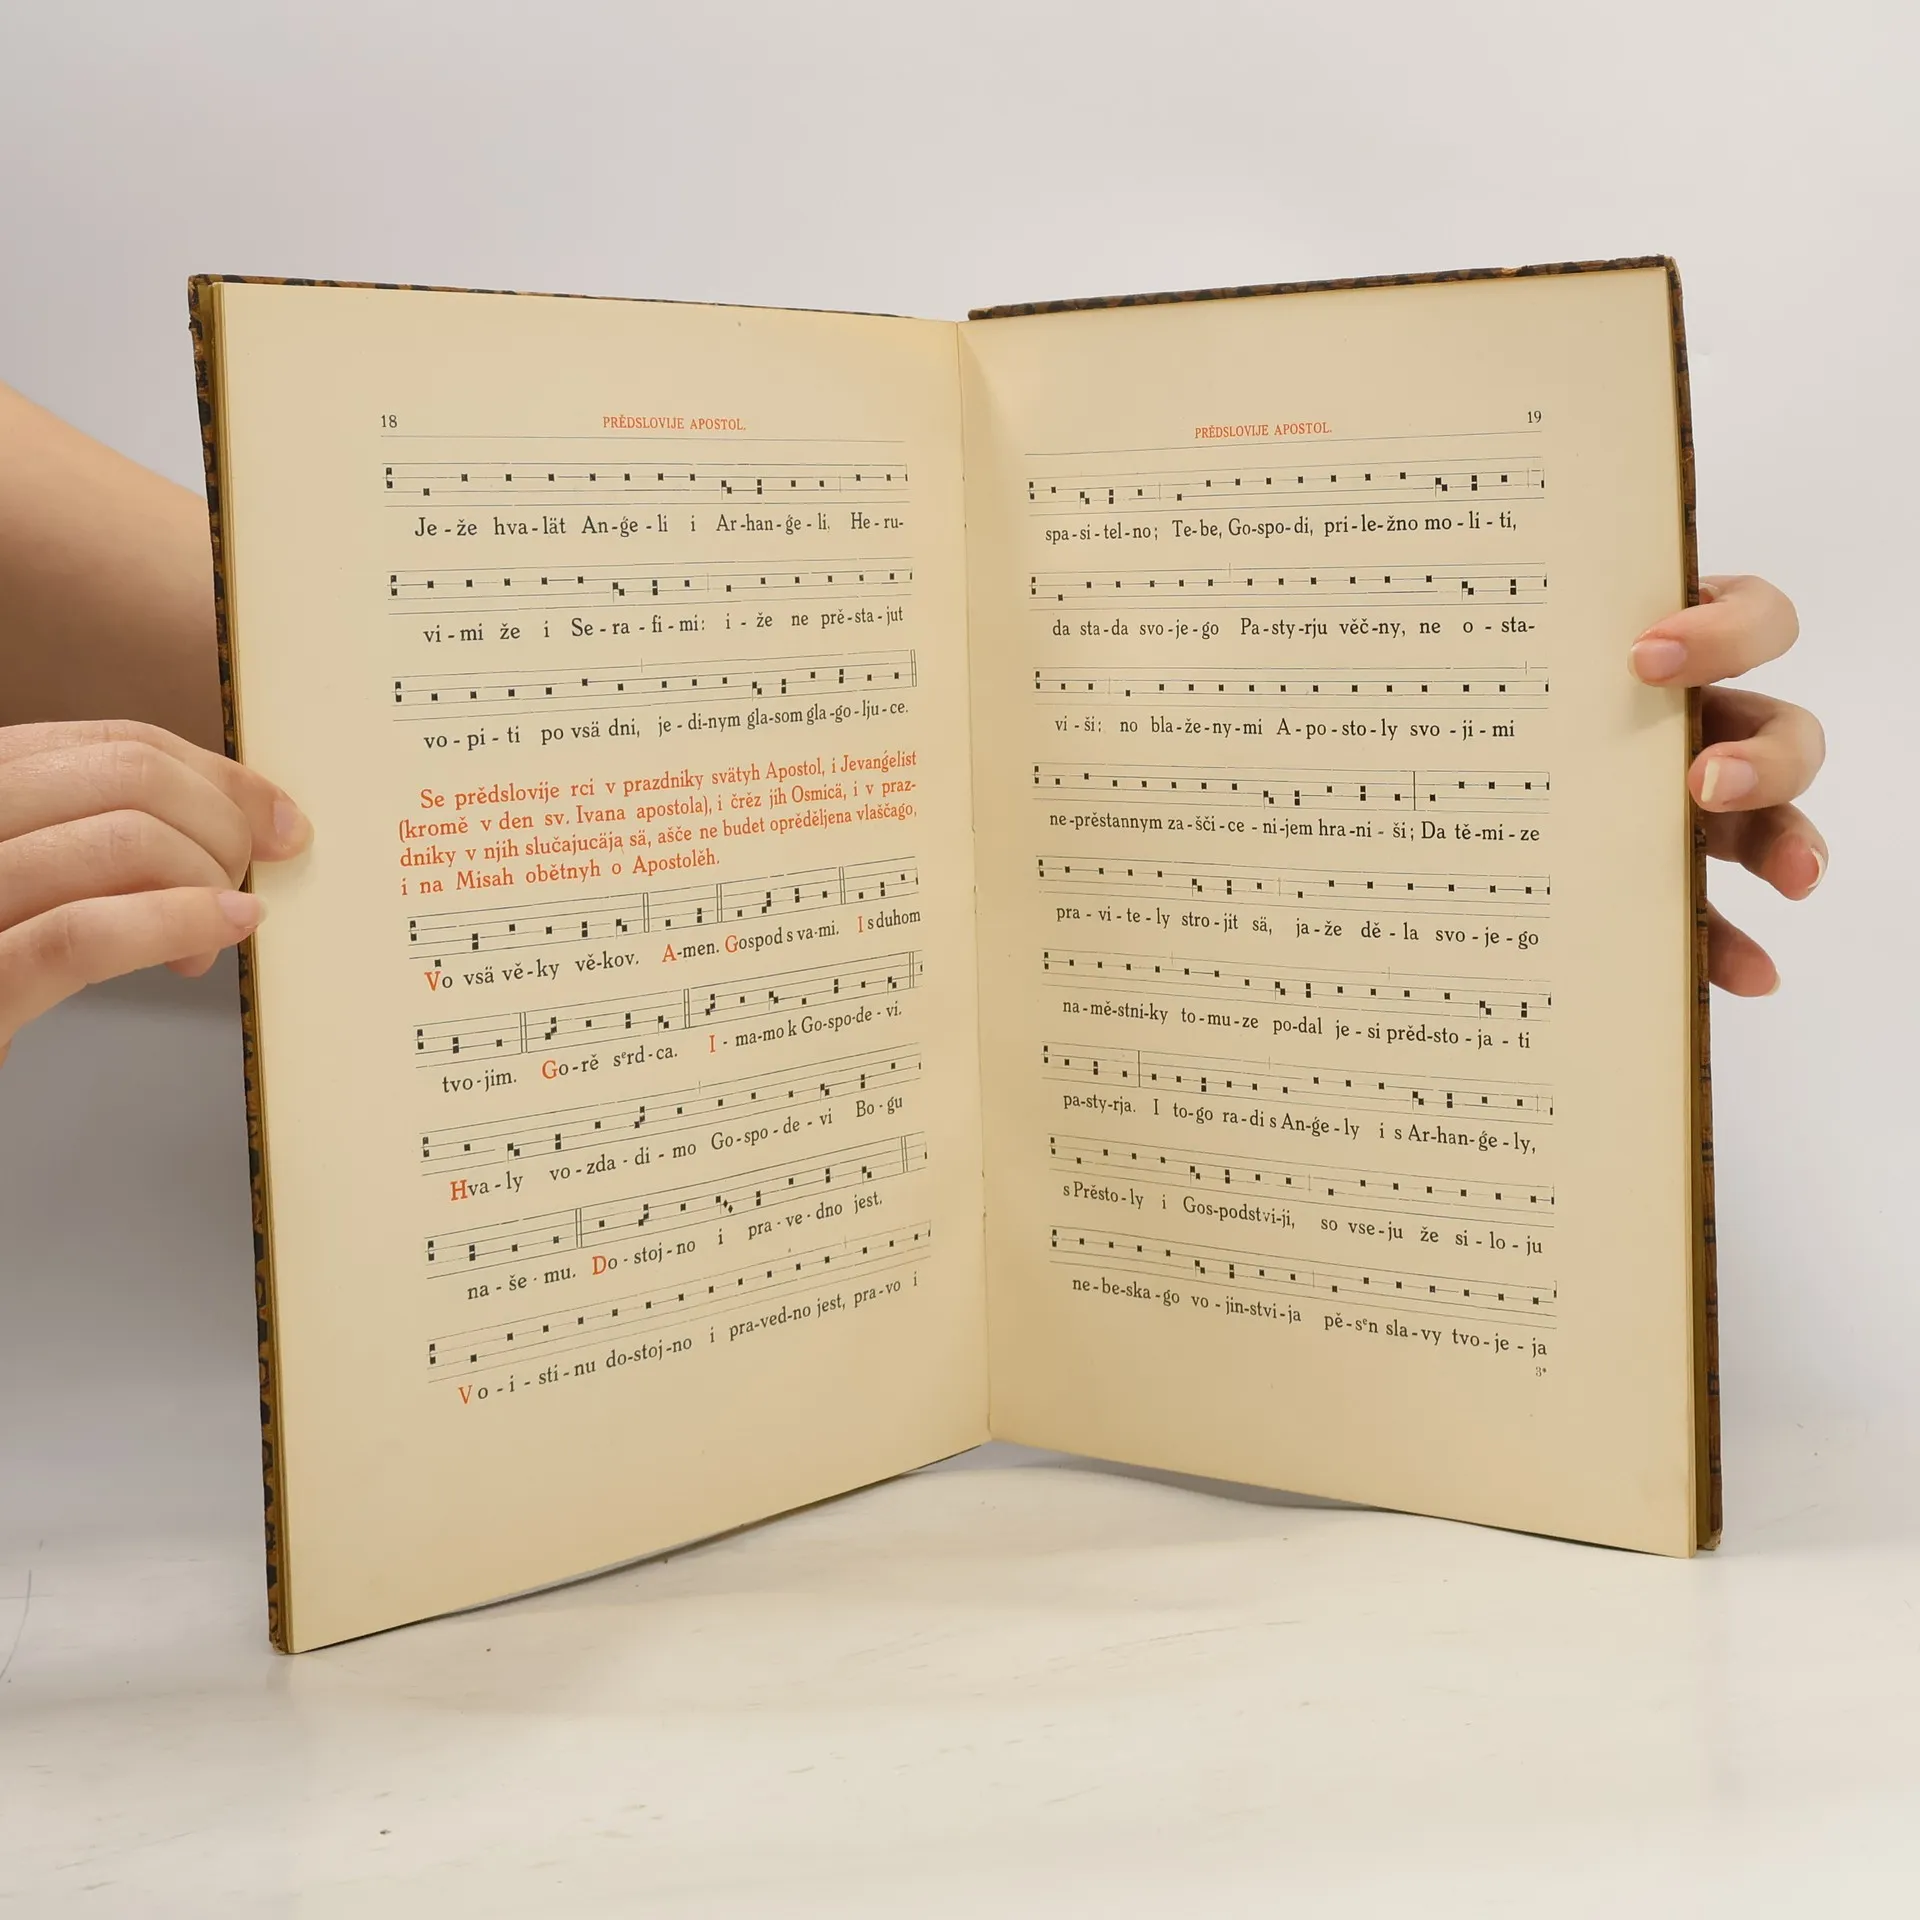 18
PRĚDSLOVIJE APOSTOL.
Je - že hva - lät An - ǵe - li i Ar - han - ǵe - li, He - ru-
vi - mi že i Se - ra - fi - mi: i - že ne prě - sta - jut
vo - pi - ti po vsä dni, je - di-nym gla-som gla-go - lju - ce.
Se prědslovije rci v prazdniky svätyh Apostol, i Jevanǵelist
(kromě v den sv. Ivana apostola), i črěz jih Osmicä, i v praz-
dniky v njih slučajucäja sä, ašče ne budet oprěděljena vlaščago,
i na Misah obětnyh o Apostolěh.
Vo vsä vě - ky vě-kov. A-men. Gospod s va-mi. I s duhom
tvo - jim. Go - rě serd - ca. I - ma-mo k Go-spo-de - vi.
Hva - ly vo - zda - di - mo Go - spo - de - vi Bo - gu
na - še - mu. Do - stoj - no i pra - ve - dno jest.
Vo - i - sti - nu do-stoj-no i pra-ved-no jest, pra-vo i
PRĚDSLOVIJE APOSTOL.
19
spa - si - tel - no; Te-be, Go-spo-di, pri - le-žno mo - li - ti,
da sta-da svo-je-go Pa-sty-rju věč-ny, ne o - sta-
vi - ši: no bla-že-ny-mi A-po-sto-ly svo - ji - mi
ne-prěstannym za-šči-ce - ni-jem hra-ni - ši; Da tě-mi - ze
pra - vi - te - ly stro - jit sä, ja-že dě - la svo - je - go
na-mě-stni-ky to-mu-ze po-dal je - si prěd-sto - ja - ti
pa-sty-rja. I to-go ra-di s An-ǵe-ly i s Ar-han-ǵe-ly,
s Prěsto-ly i Gos-podstvi-ji, so vse-ju že si - lo - ju
ne-be-ska-go vo - jin-stvi-ja pě-sen sla-vy tvo-je - ja
3*